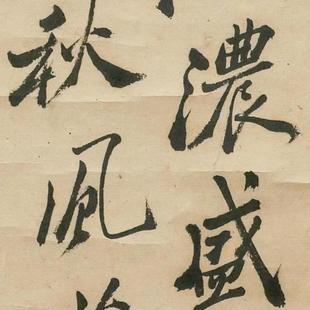 濃盛
秋風